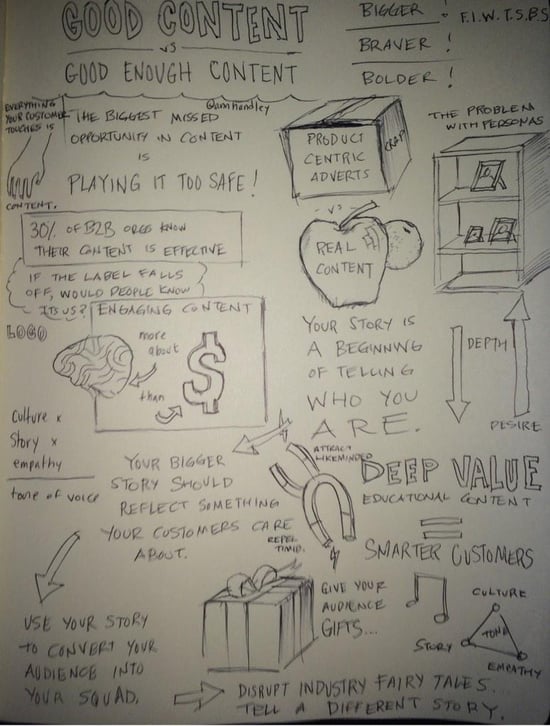 GOOD CONTENT
VS
GOOD ENOUGH CONTENT
BIGGER !
BRAVER !
BOLDER !
F.I.W.T.S.B.S
EVERYTHING
YOUR CUSTOMER
TOUCHES IS
CONTENT.
@annhandley
THE BIGGEST MISSED
OPPORTUNITY IN CONTENT
IS
PLAYING IT TOO SAFE!
PRODUCT
CENTRIC
ADVERTS
CRAP
VS
REAL
CONTENT
THE PROBLEM
WITH PERSONAS
30% OF B2B ORGS KNOW
THEIR CONTENT IS EFFECTIVE
IF THE LABEL FALLS
OFF, WOULD PEOPLE KNOW
ITS US?
LOGO
ENGAGING CONTENT
more
about
than
$
YOUR STORY IS
A BEGINNING
OF TELLING
WHO YOU
ARE.
DEPTH
DESIRE
Culture x
Story x
empathy
tone of voice
YOUR BIGGER
STORY SHOULD
REFLECT SOMETHING
YOUR CUSTOMERS CARE
ABOUT.
ATTRACT
LIKEMINDED
REPEL
TIMID.
DEEP VALUE
EDUCATIONAL CONTENT
=
SMARTER CUSTOMERS
USE YOUR STORY
TO CONVERT YOUR
AUDIENCE INTO
YOUR SQUAD.
GIVE YOUR
AUDIENCE
GIFTS...
CULTURE
TONE
STORY
EMPATHY
DISRUPT INDUSTRY FAIRY TALES.
TELL A DIFFERENT STORY.